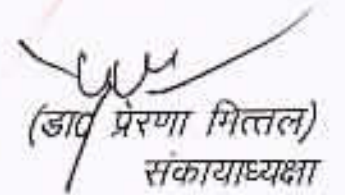 (डा० प्रेरणा मित्तल)
संकायाध्यक्षा